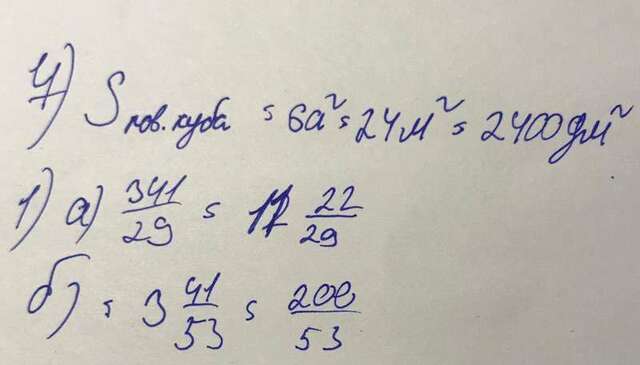 4) S пов.куба = 6a² = 24 м² = 2400 дм²
1) а) 341/29 = 11 22/29
б) = 3 41/53 = 200/53